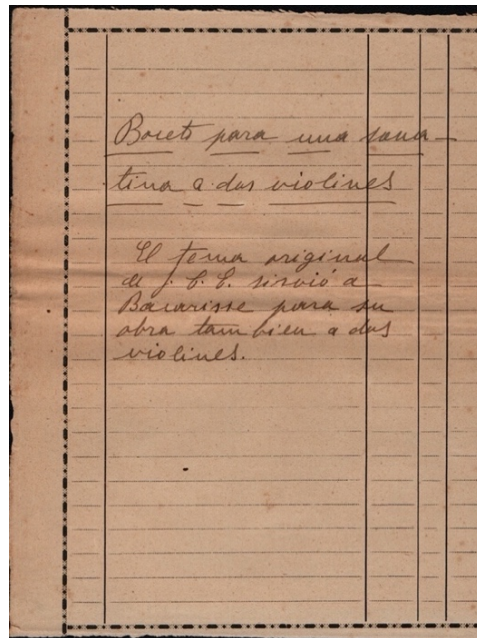 Boceto para una sona-
tina a dos violines
El tema original
de J. C. C. sirvió a
Bacarisse para su
obra tambien a dos
violines.